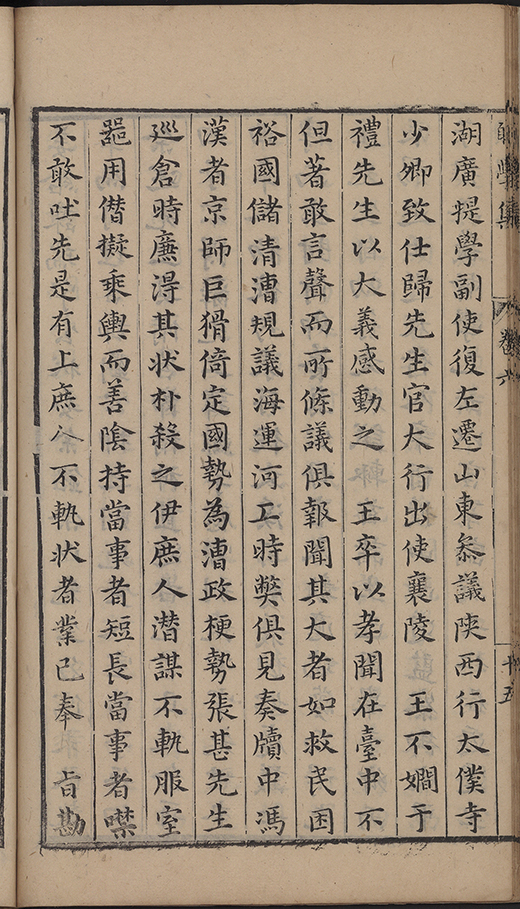 卷六
十五
湖廣提學副使復左遷山東叅議陝西行太僕寺
少卿致仕歸先生官大行出使襄陵　王不嫺于
禮先生以大義感動之　王卒以孝聞在臺中不
但著敢言聲而所條議俱報聞其大者如救民困
裕國儲清漕規議海運河工時獘俱見奏牘中馮
漢者京師巨猾倚定國勢為漕政梗勢張甚先生
巡倉時廉淂其状朴殺之伊庶人潜謀不軌服室
噐用僣擬乘輿而善陰持當事者短長當事者噤
不敢吐先是有上庶人不軌状者業已奉　㫖勘